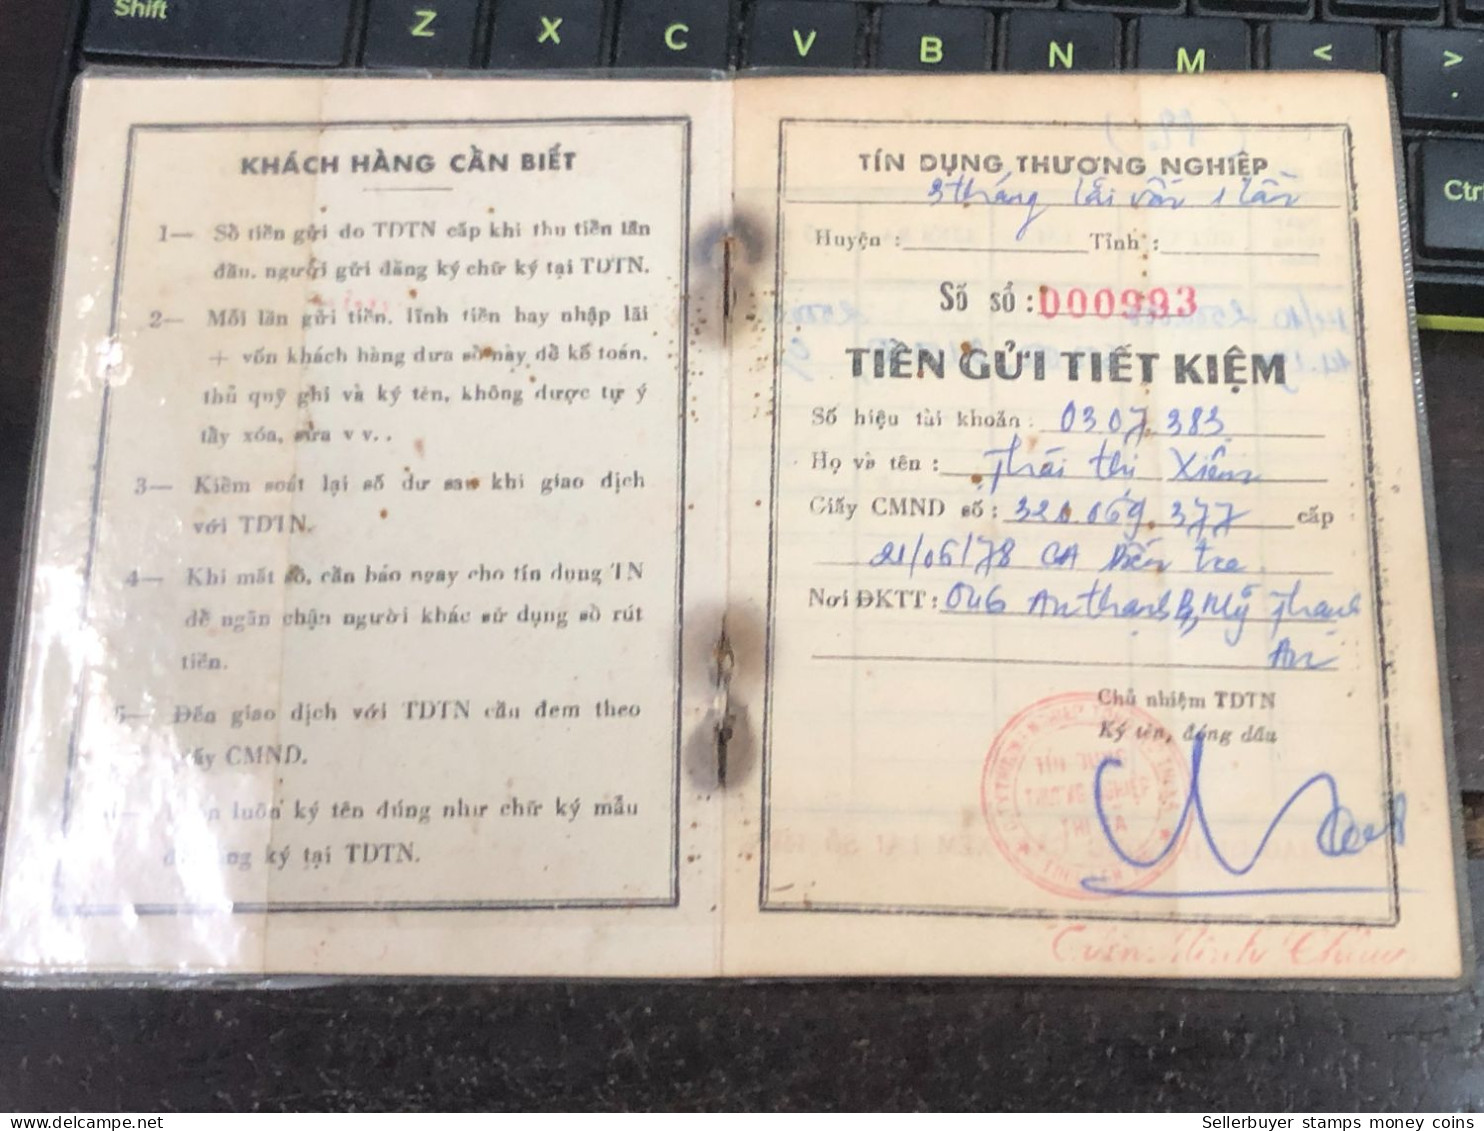 Shift Z X C V B N M < >
.
Ctr
KHÁCH HÀNG CẦN BIẾT
1— Sổ tiền gửi do TDTN cấp khi thu tiền lần
đầu, người gửi đăng ký chữ ký tại TDTN.
2— Mỗi lần gửi tiền, lĩnh tiền hay nhập lãi
+ vốn khách hàng đưa sổ này để kế toán,
thủ quỹ ghi và ký tên, không được tự ý
tẩy xóa, sửa v v. .
3— Kiểm soát lại số dư sau khi giao dịch
với TDTN.
4— Khi mất sổ, cần báo ngay cho tín dụng TN
để ngăn chận người khác sử dụng sổ rút
tiền.
5— Đến giao dịch với TDTN cần đem theo
giấy CMND.
luôn ký tên đúng như chữ ký mẫu
ký tại TDTN.
TÍN DỤNG THƯƠNG NGHIỆP
3 tháng lãi vốn 1 lần
Huyện : Tỉnh :
Số sổ : 000993
TIỀN GỬI TIẾT KIỆM
Số hiệu tài khoản : 0307.383
Họ và tên : Thái Thị Xiêm
Giấy CMND số : 320.069.377 cấp
21/06/78 CA Bến Tre
Nơi ĐKTT : 046 An Thạnh B, Mỹ Thạnh
An
Chủ nhiệm TDTN
Ký tên, đóng dấu
THỊ XÃ
Sellerbuyer stamps money coins